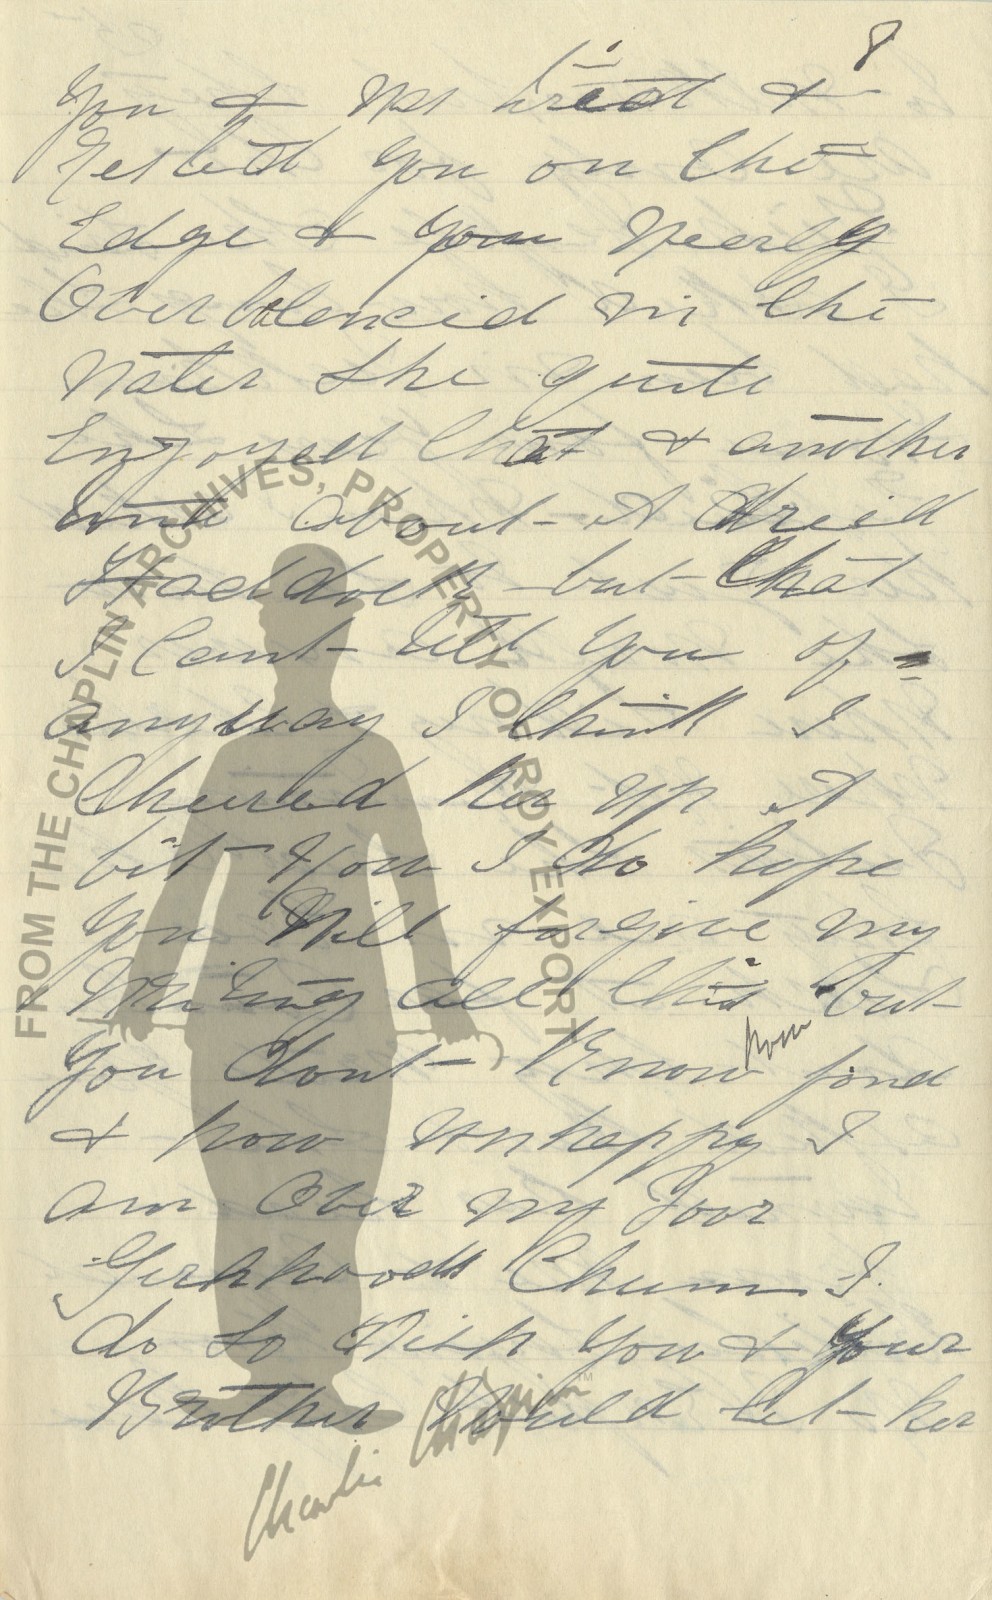 8
You & Not  &
 You on the
Edge & You Neerly
Overbalencid in the
Water She quite
Enjoyed that & another
 about A dried
Haddock but that
I Cant tell you of
anyway I think I
Cheered her up A
bit Now I do hope
You Will forgive my
Writing all this but
You dont Know how fond
& how unheppy I
am Over my Poor
Girlhoods Chum I
do so Wish You & Your
Brother Would Let her
FROM THE CHAPLIN ARCHIVES, PROPERTY OF ROY EXPORT
Charlie Chaplin ™